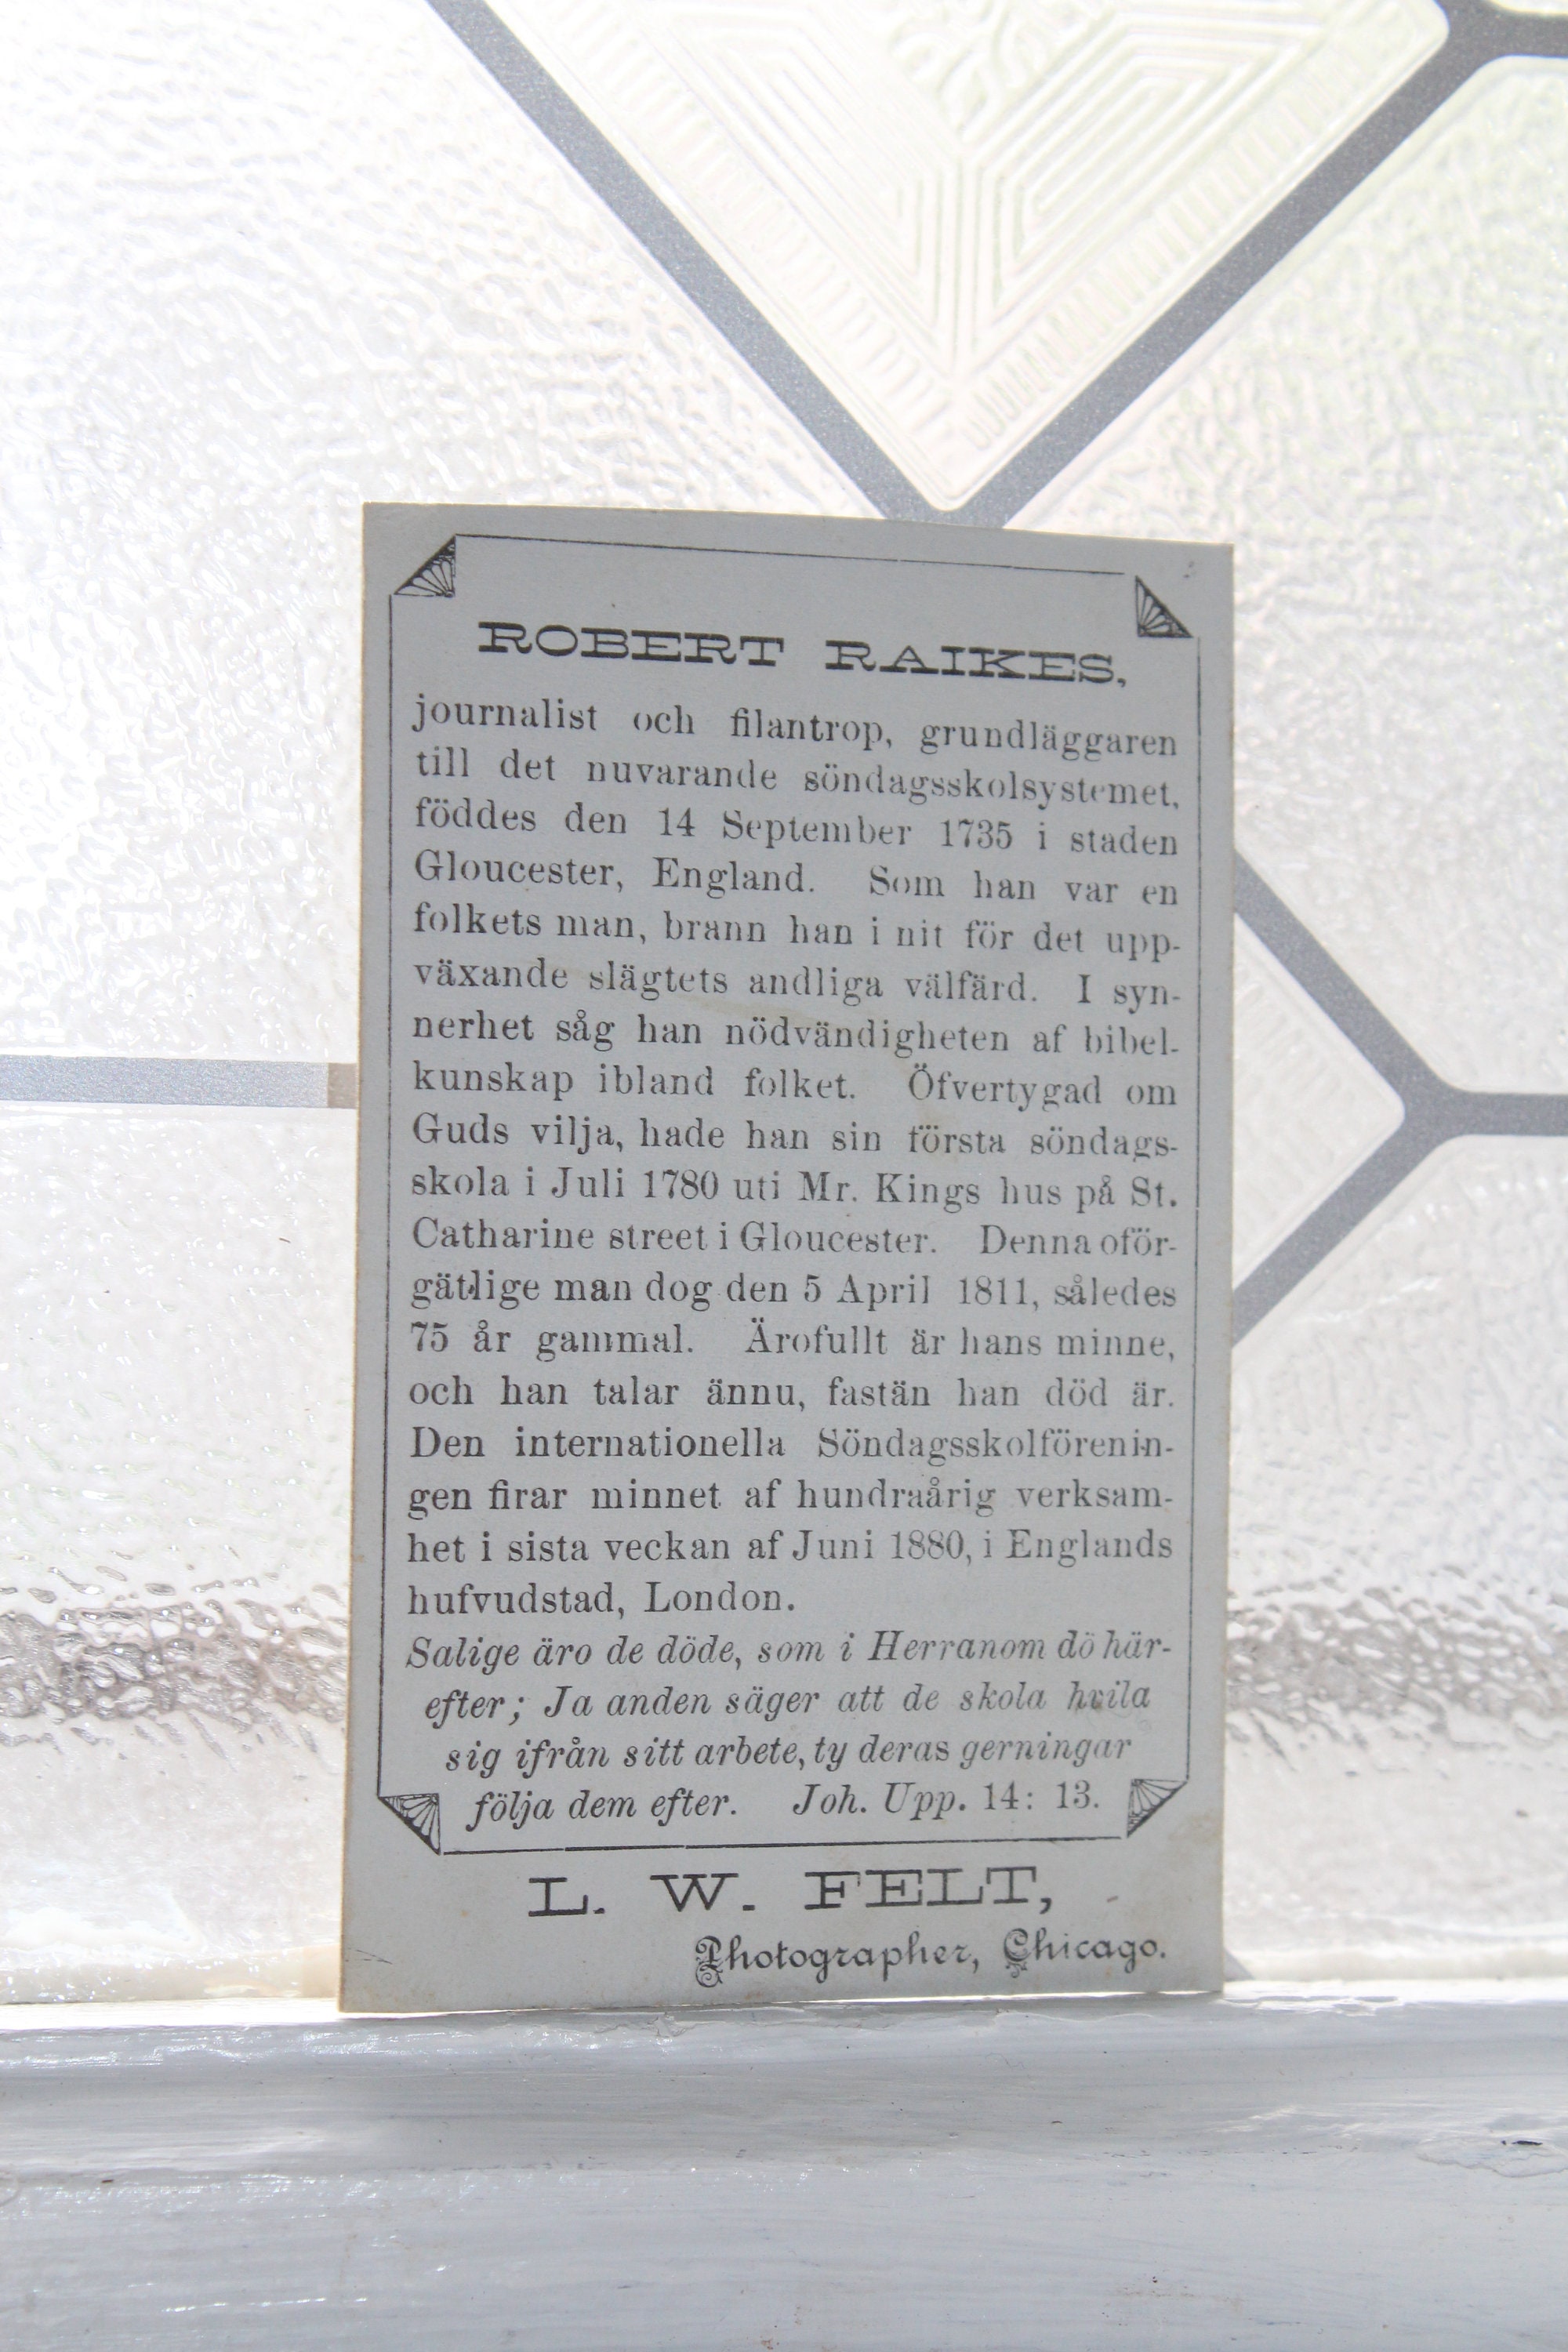 ROBERT RAIKES,
journalist och filantrop, grundläggaren
till det nuvarande söndagsskolsystemet,
föddes den 14 September 1735 i staden
Gloucester, England. Som han var en
folkets man, brann han i nit för det upp-
växande slägtets andliga välfärd. I syn-
nerhet såg han nödvändigheten af bibel-
kunskap ibland folket. Öfvertygad om
Guds vilja, hade han sin första söndags-
skola i Juli 1780 uti Mr. Kings hus på St.
Catharine street i Gloucester. Denna oför-
gätlige man dog den 5 April 1811, således
75 år gammal. Ärofullt är hans minne,
och han talar ännu, fastän han död är.
Den internationella Söndagsskolförenin-
gen firar minnet af hundraårig verksam-
het i sista veckan af Juni 1880, i Englands
hufvudstad, London.
Salige äro de döde, som i Herranom dö här-
efter; Ja anden säger att de skola hvila
sig ifrån sitt arbete, ty deras gerningar
följa dem efter. Joh. Upp. 14: 13.
L. W. FELT,
Photographer, Chicago.